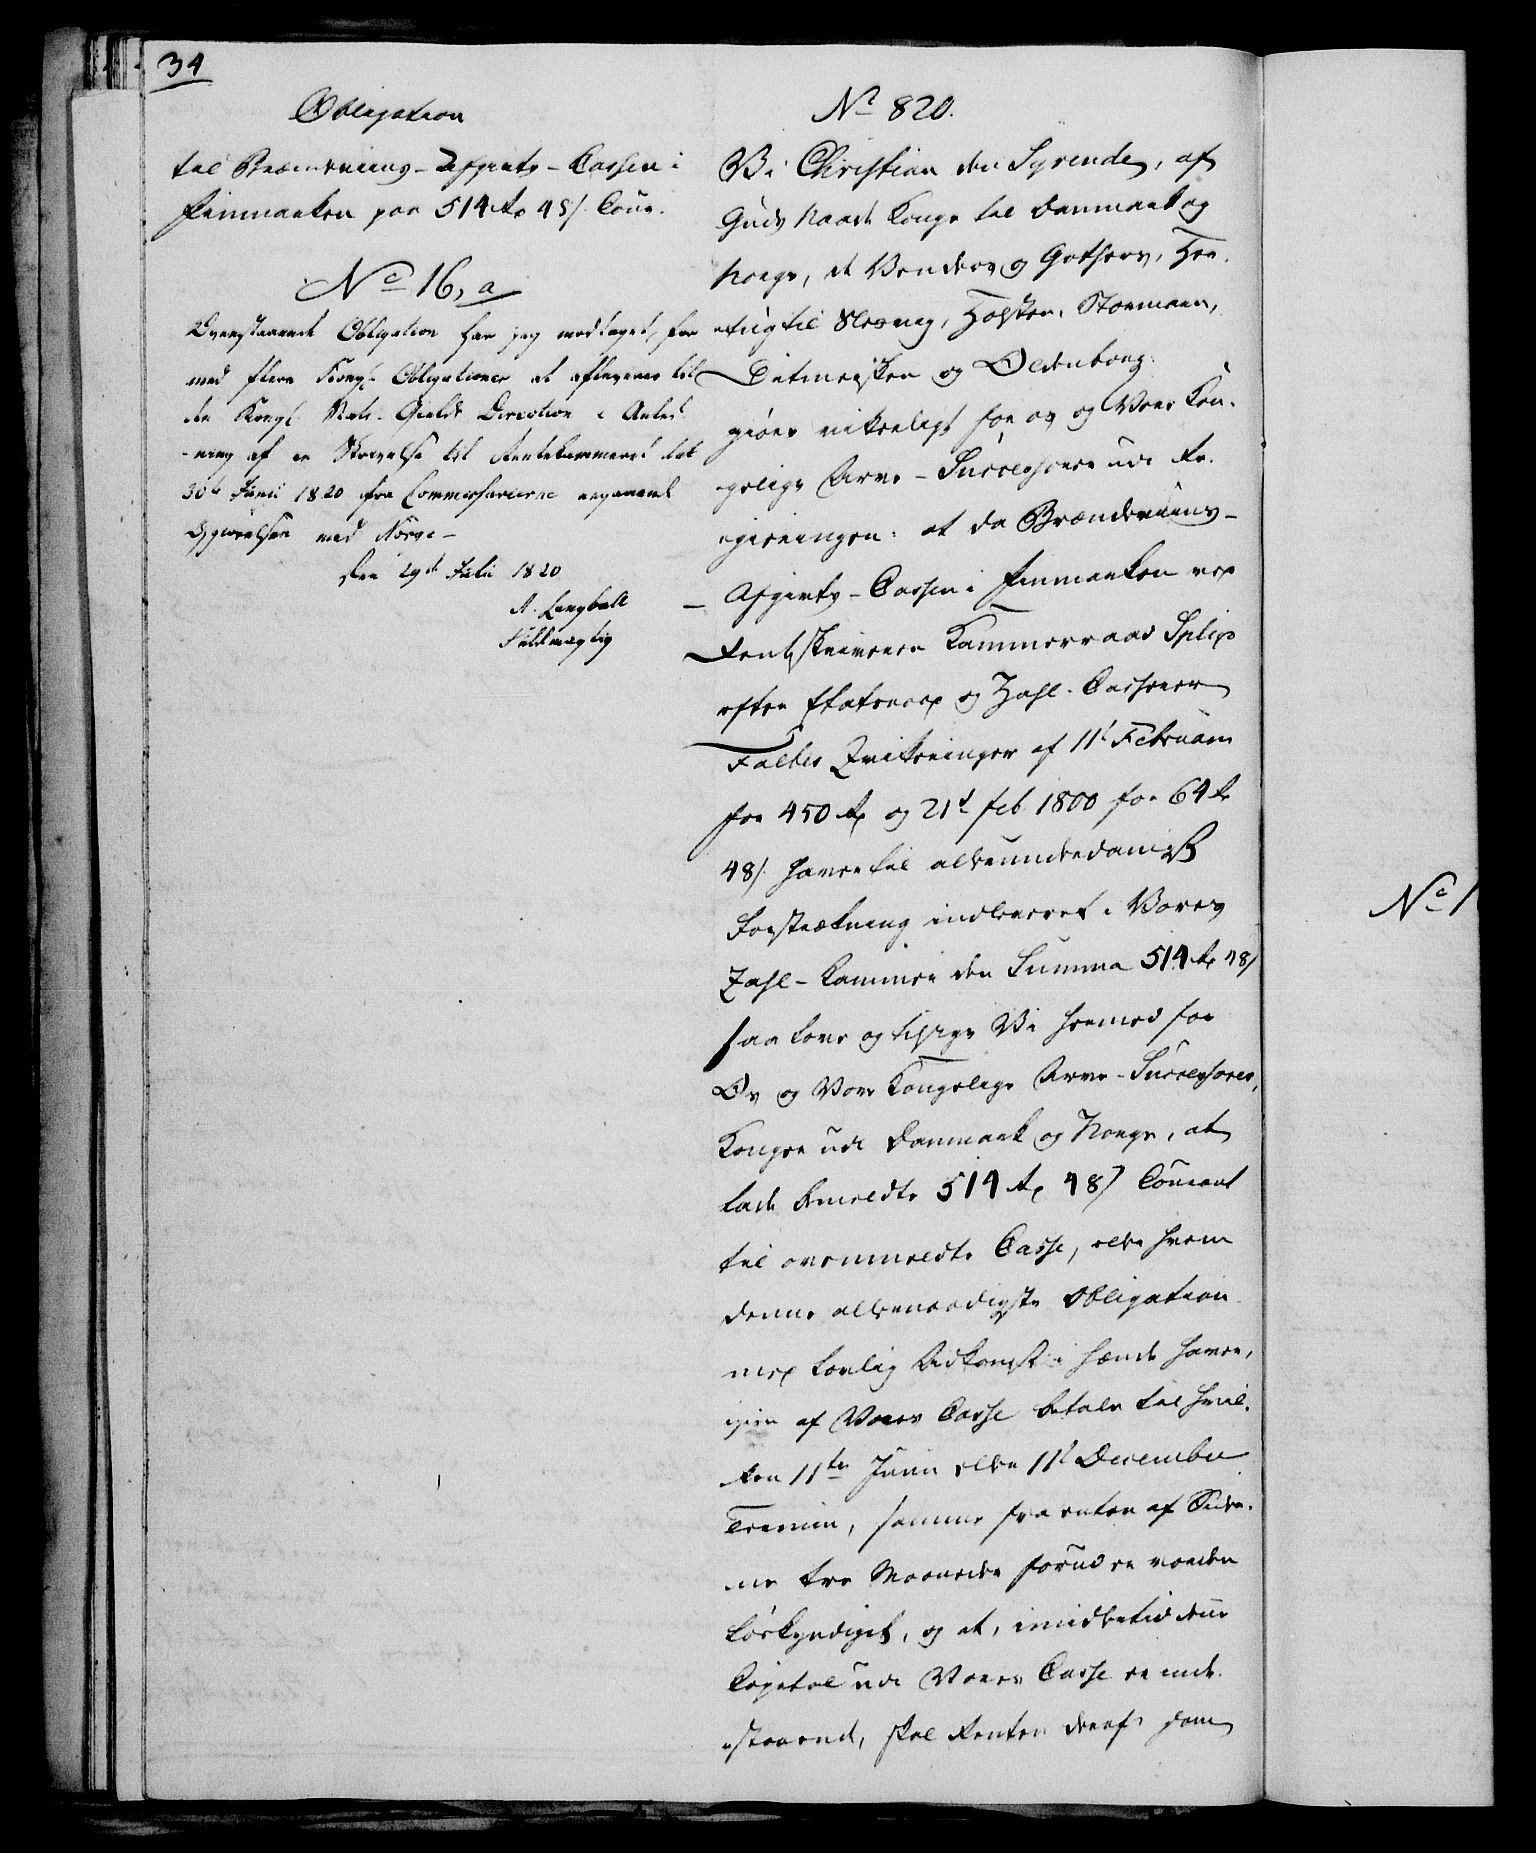 34
Obligation
til Brændeviins-Afgivts-Cassen i
Finmarken paa 514 Rd 48 s. Cour.
No 16, a
Ovenstaaende Obligation har jeg modtaget, for
med flere Kongl. Obligationer at afleveres til
den Kongl. Stats-Gields Direction i Anled-
-ning af en Skrivelse til Rentekammeret dat
30te Junii 1820 fra Commissarierne angaaende
Opgiørelsen med Norge -
den 29de Julii 1820
A. Lengball
Fuldmægtig
No 820.
Vi Christian den Syvende, af
Guds Naade Konge til Danmark og
Norge, de Venders og Gothers, Her-
-tug til Slesvig, Holsten, Stormarn,
Ditmersken og Oldenborg:
giøre vitterligt for os og Vore Kon-
-gelige Arve-Successorer udi Re-
-gieringen: at da Brændeviins-
- Afgivts-Cassen i Finmarken ved
Rentskriveren Kammerraad Selip
efter Etatsraad og Zahl-Casserer
Falbes Qvitteringer af 11t Februarii
for 450 Rd og 21d feb. 1800 for 64 Rd
48 s. haver til allerunderdanigst
Forstrækning indleveret i Vores
Zahl-Kammer den Summa 514 Rd 48 s
saa love og tilsige Vi hermed for
Os og Vore Kongelige Arve-Successorer,
Konger udi Danmark og Norge, at
lade bemeldte 514 Rd 48 s Courant
til ovenmeldte Casse, eller hvem
denne allernaadigste Obligation
med lovlig Adkomst i Hænde haver,
igien af Vores Casse betale til hvil-
ken 11te Junii eller 11t December
Termin, samme fra enten af Sider-
ne tre Maaneder forud er vorden
løskyndiget, og at, imidlertid denne
Capital udi Vores Casse er inde-
-staaende, skal Renten deraf som
No 1